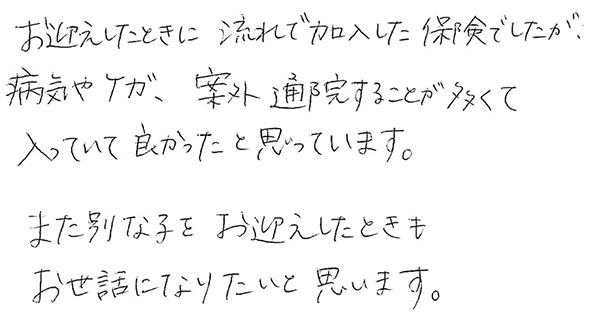 お迎えしたときに 流れで加入した 保険でしたが、
病気やケガ、案外 通院することが多くて
入っていて 良かったと思っています。
また別な子を お迎えしたときも
お世話になりたいと思います。